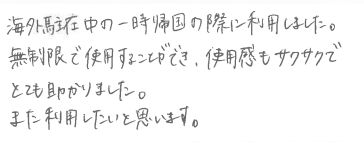 海外駐在中の一時帰国の際に利用しました。
無制限で使用することができ、使用感もサクサクで
とても助かりました。
また利用したいと思います。